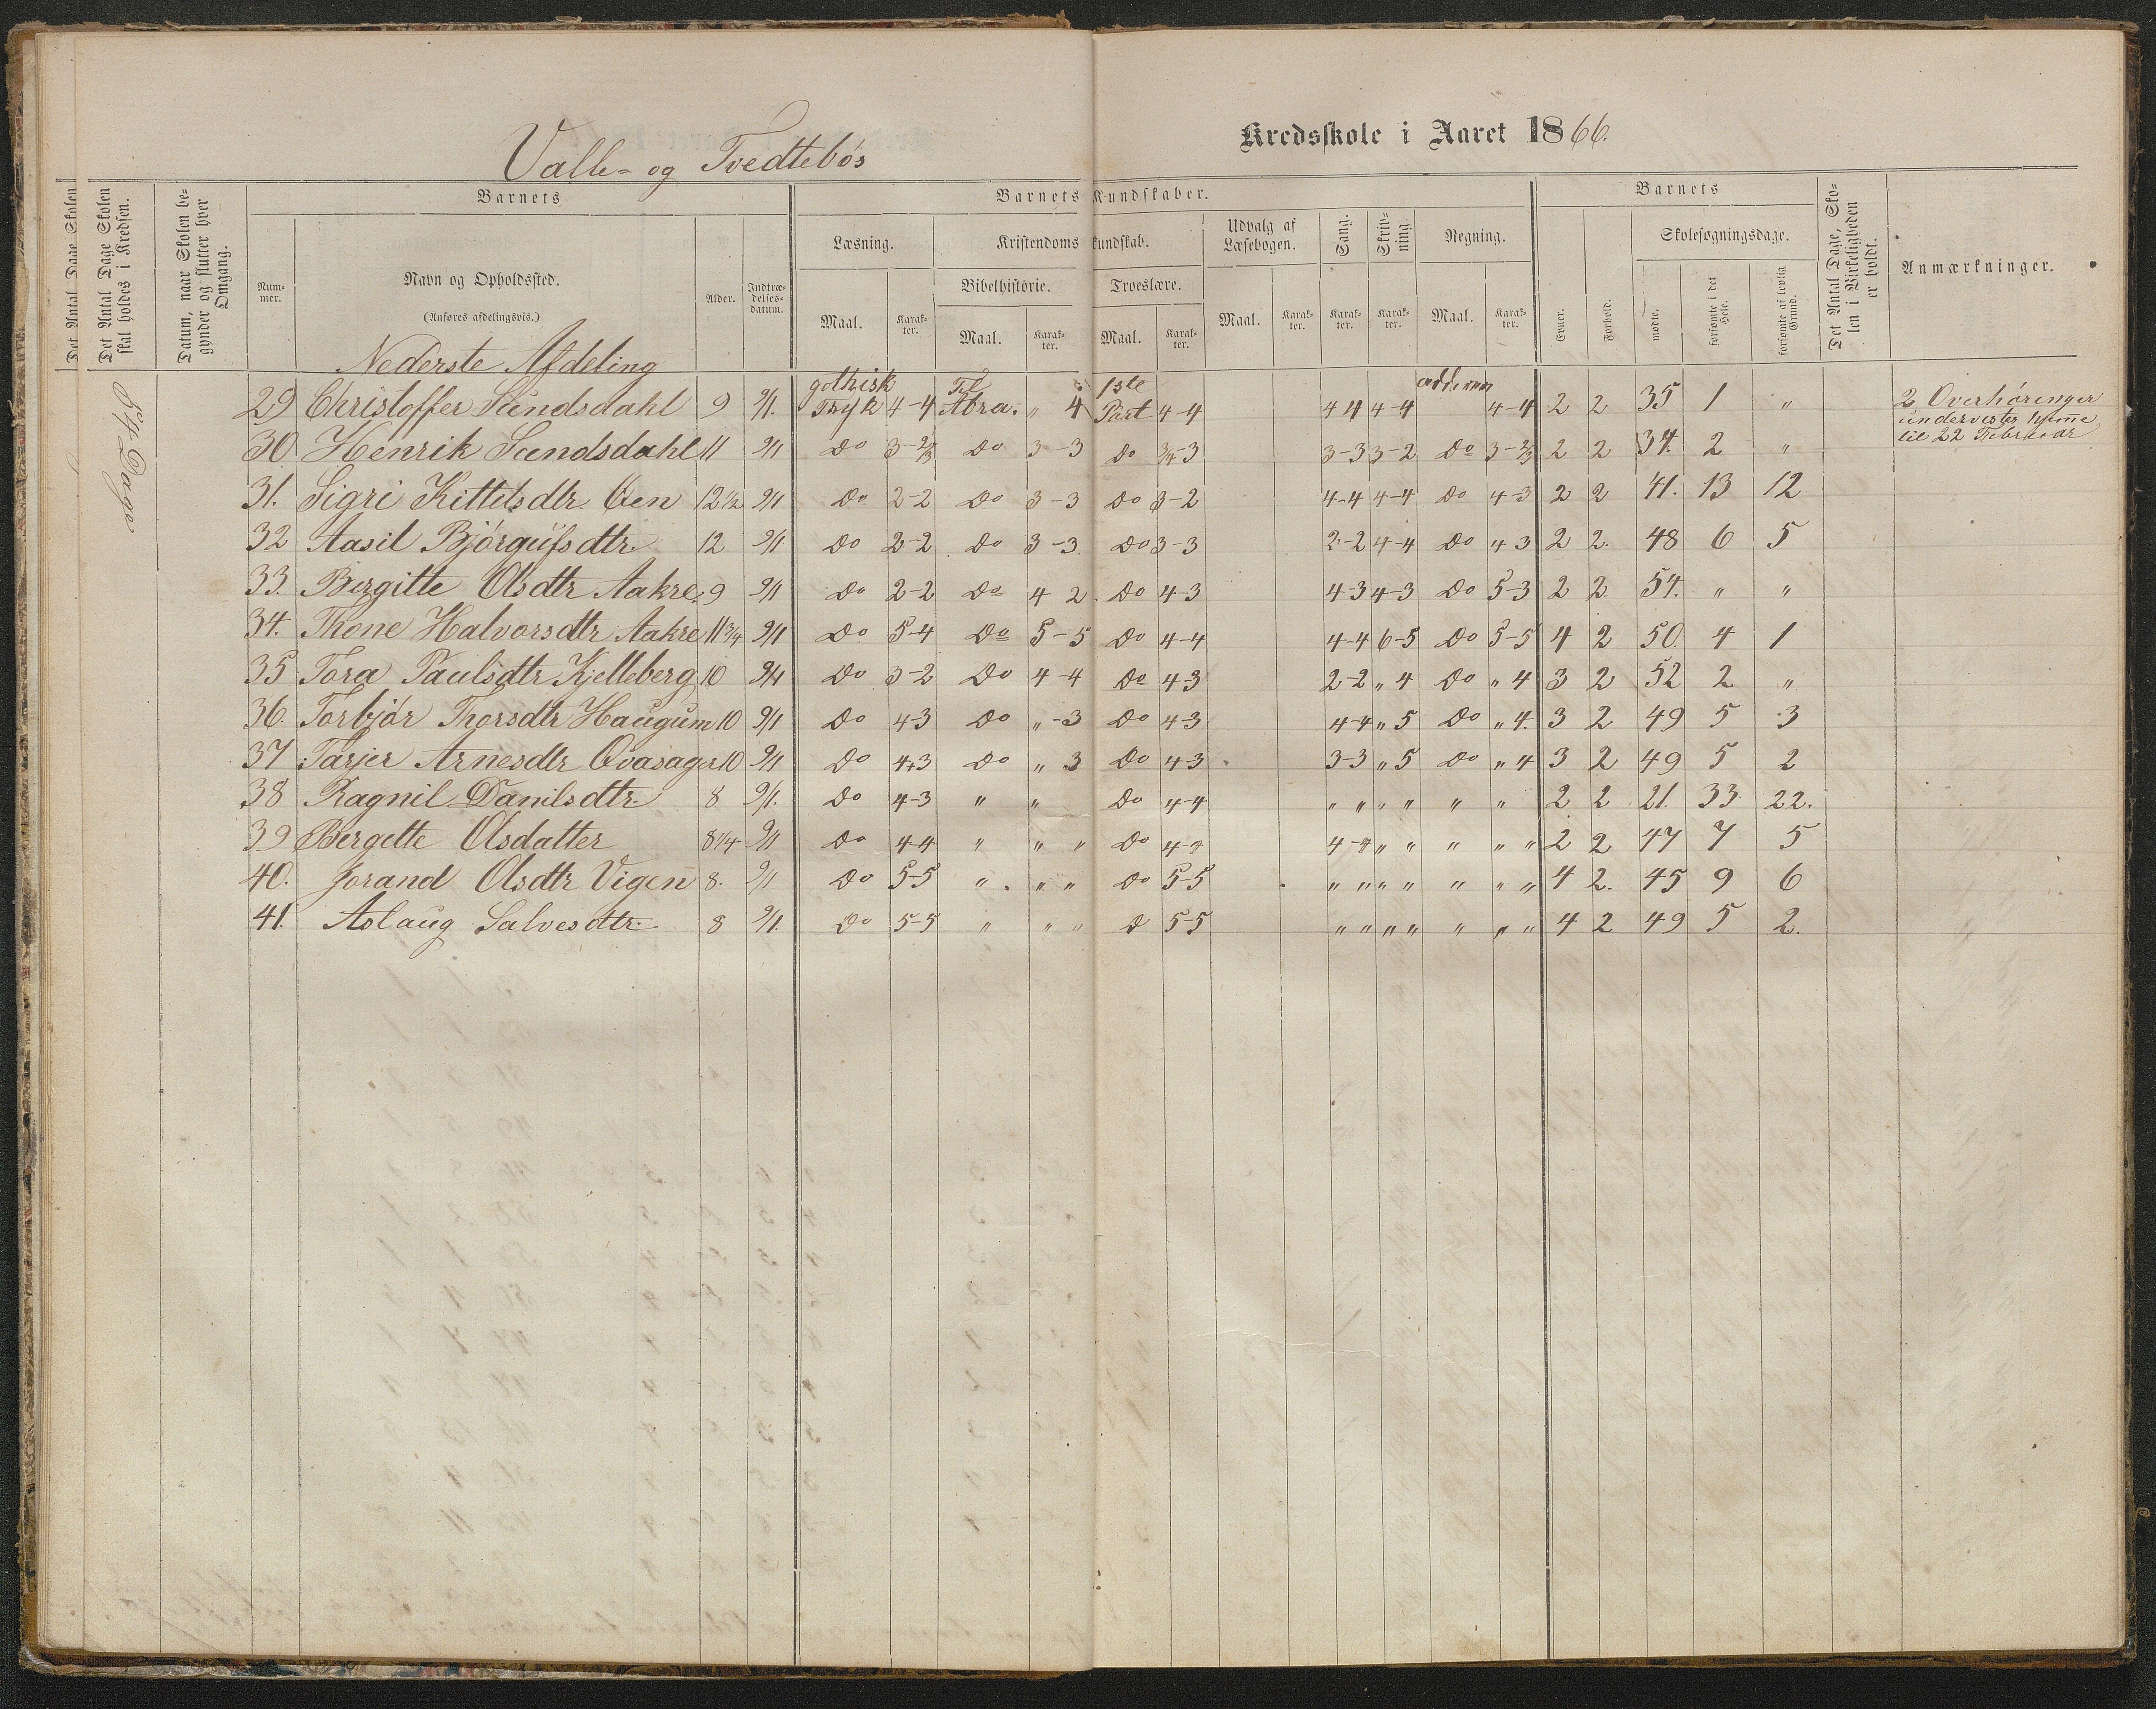 Valle- og Tvedtebøs
Kredsskole i Aaret 1866.
Det Antal Dage Skolen
Det Antal Dage Skolen skal holdes i Kredsen.
Datum, naar Skolen begynder og slutter hver Omgang.
Barnets
Barnets Kundskaber.
Barnets
Det Antal Dage, Skolen i Virkeligheden er holdt.
Anmærkninger.
Nummer.
Navn og Opholdssted.
(Anføres afdelingsvis.)
Alder.
Indtrædelsesdatum.
Læsning.
Kristendomskundskab.
Udvalg af Læsebogen.
Sang.
Skrivning.
Regning.
Skolesøgningsdage.
Bibelhistorie.
Troeslære.
Maal. Karakter. Maal. Karakter. Maal. Karakter. Maal. Karakter. Karakter. Karakter. Maal. Karakter.
Evner. Forhold. mødte. forsømte i det Hele. forsømte af lovlig Grund.
54 Dage
Nederste Afdeling
29 Christoffer Sundsdahl 9 9/1. gothisk Tryk 4-4 Til Abra. " 4 1ste Part 4-4 4 4 4-4 4-4 2 2 35 1 "
2 Overhøringer
undervistes hjemme
til 22 Februar
30 Henrik Sundsdahl 11 9/1 Do 3-2/3 Do 3-3 Do 3/4-3 3-3 3-2 Do 3-2/3 2 2 34. 2 "
31. Sigri Kittelsdtr. 12 1/2 9/1 Do 2-2 Do 3-3 Do 3-2 4-4 4-4 Do 4-3 2 2 41. 13 12
32 Aasil Bjørgufsdtr. 12 9/1 Do 2-2 Do 3-3. Do 3-3 2-2 4-4 Do 4 3 2 2. 48 6 5
33. Bergitte Olsdtr Aakre 9 9/1 Do 2-2 Do 4 2. Do 4-3 4-3 4-3 Do 5-3 2 2 54. " "
34. Thone Halvorsdtr Aakre 11 3/4 9/1 Do 5-4 Do 5-5 Do 4-4 4-4 6-5 Do 5-5 4 2 50. 4 1
35 Tora Paulsdtr Kjelleberg 10 9/1 Do 3-2 Do 4-4 Do 4-3 2-2 " 4 Do " 4 3 2 52 2 "
36. Torbjør Thorsdtr Haugum 10 9/1 Do 4-3 Do "-3 Do 4-3 4-4 " 5 Do " 4. 3 2 49 5 3
37 Tarjer Arnesdtr 10 9/1 Do 4-3 Do " 3 Do 4-3 3-3 " 5 Do " 4 3 2 49 5 2
38 Ragnil Danilsdtr. 8 9/1. Do 4-3 " " Do 4-4 " " " " " " 2 2 21. 33 22.
39 Bergette Olsdatter 8 1/4 9/1 Do 4-4 " " " Do 4-4 4-4 " " " " " 2 2 47 7 5
40. Jorand Olsdtr Vigen 8. 9/1 Do 5-5 " " " Do 5-5 " " " " " " " 4 2. 45 9 6
41. Aslaug Salvesdtr. 8 9/1. Do 5-5 " " " D 5-5 " " " " " " " 4 2 49 5 2.